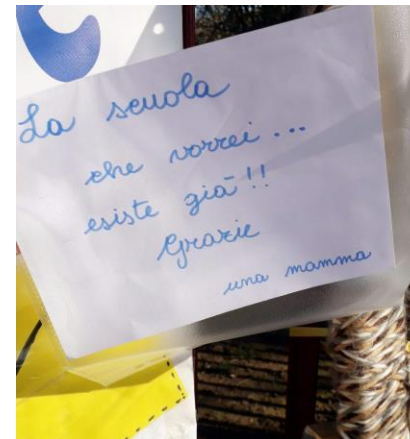 La scuola
che vorrei...
esiste già!!
Grazie
una mamma